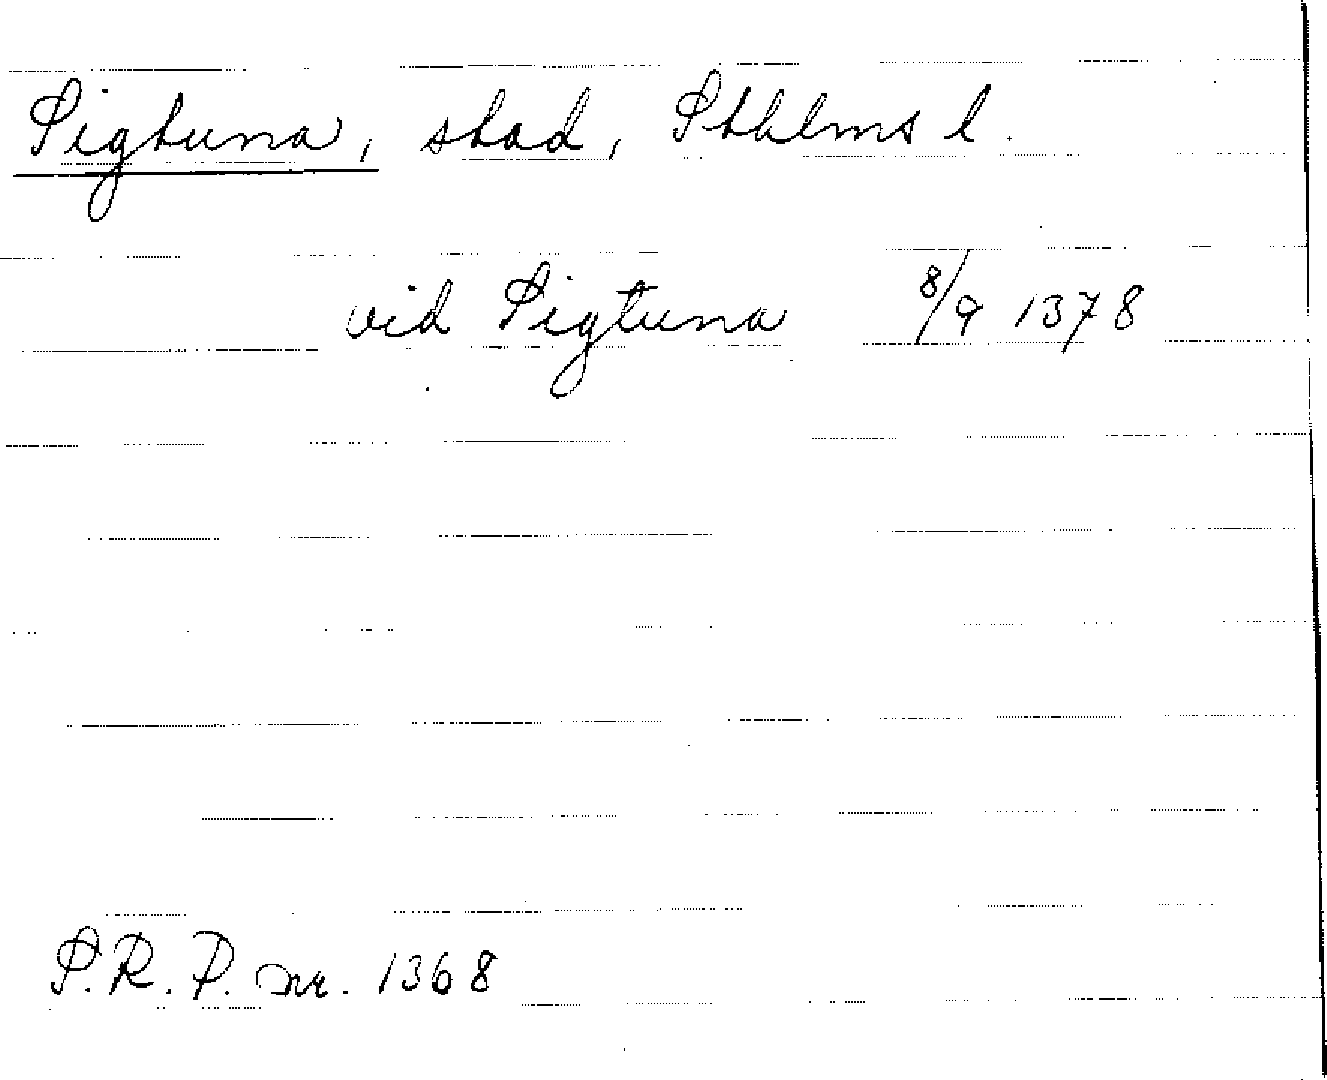 Sigtuna, stad, Sthlms l.
vid Sigtuna 8/9 1378
S.R.P. nr. 1368